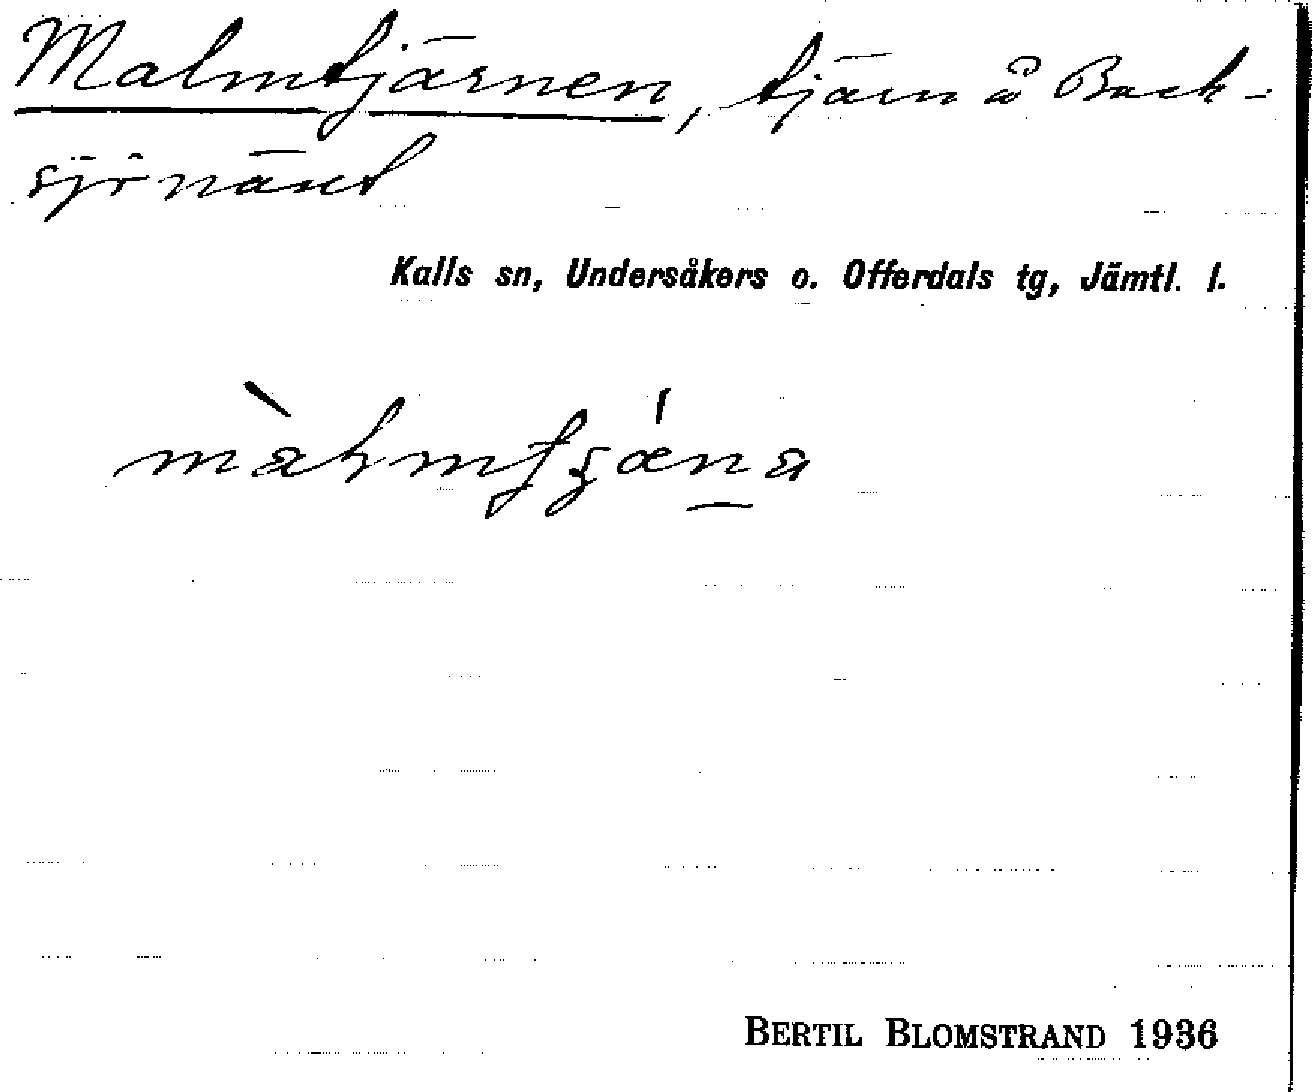 Malmtjärnen, tjärn å Back-
sjönäset
Kalls sn, Undersåkers o. Offerdals tg, Jämtl. l.
BERTIL BLOMSTRAND 1936